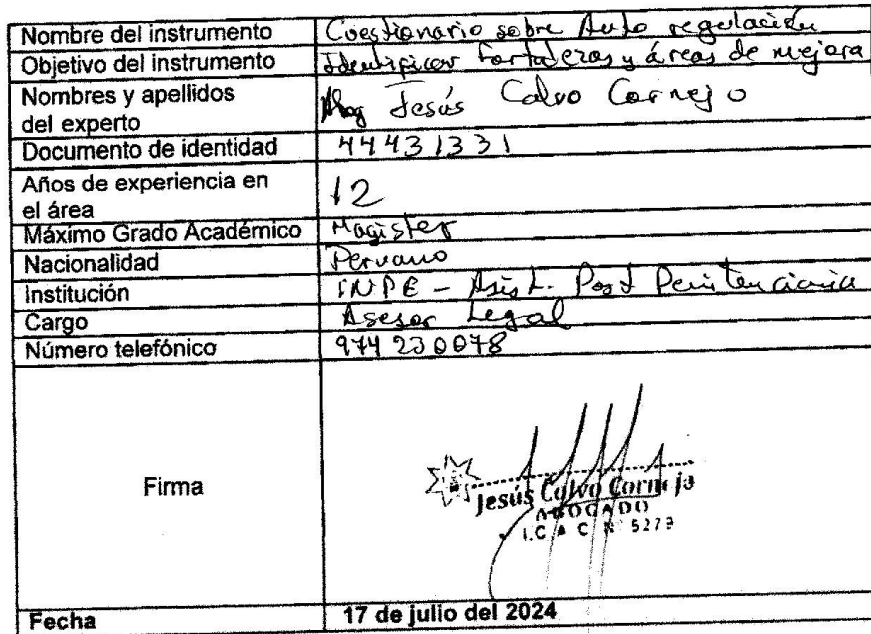 Nombre del instrumento Cuestionario sobre Auto regulación
Objetivo del instrumento Identificar Fortalezas y áreas de mejora
Nombres y apellidos
del experto Mag Jesús Calvo Cornejo
Documento de identidad 44431331
Años de experiencia en
el área 12
Máximo Grado Académico Magister
Nacionalidad Peruano
Institución INPE - Asist. Post Penitenciaria
Cargo Asesor Legal
Número telefónico 974230078
Firma
Jesús Calvo Cornejo
ABOGADO
I.C A C N° 5279
Fecha 17 de julio del 2024